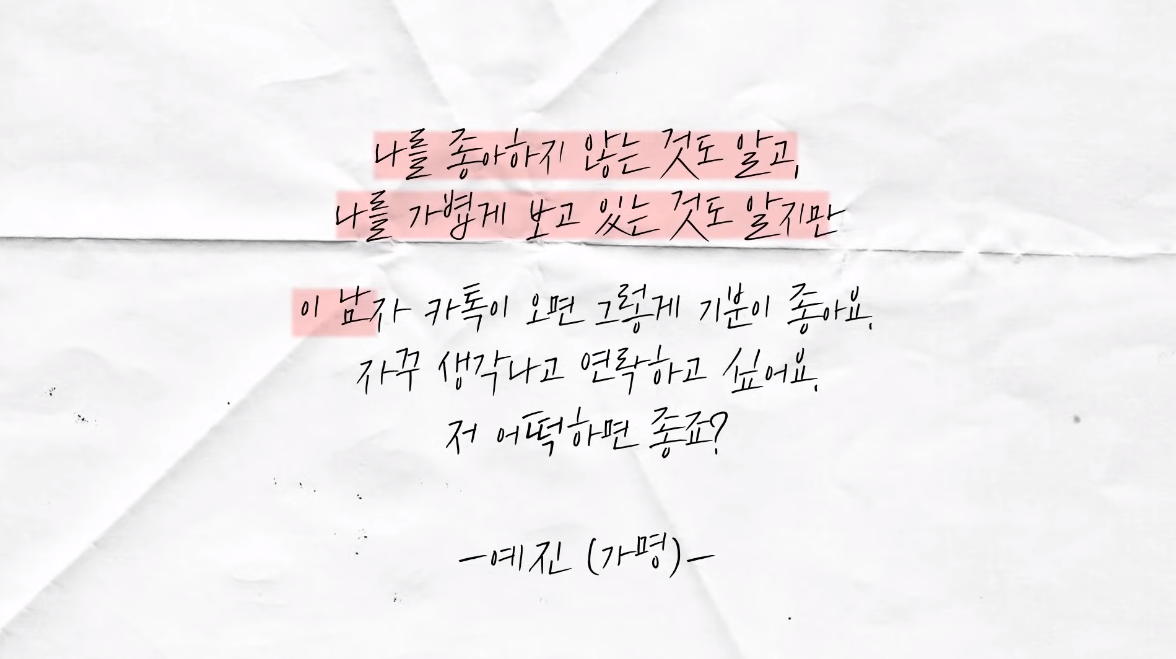 나를 좋아하지 않는 것도 알고,
나를 가볍게 보고 있는 것도 알지만
이 남자 카톡이 오면 그렇게 기분이 좋아요.
자꾸 생각나고 연락하고 싶어요.
저 어떡하면 좋죠?
-예진 (가명)-